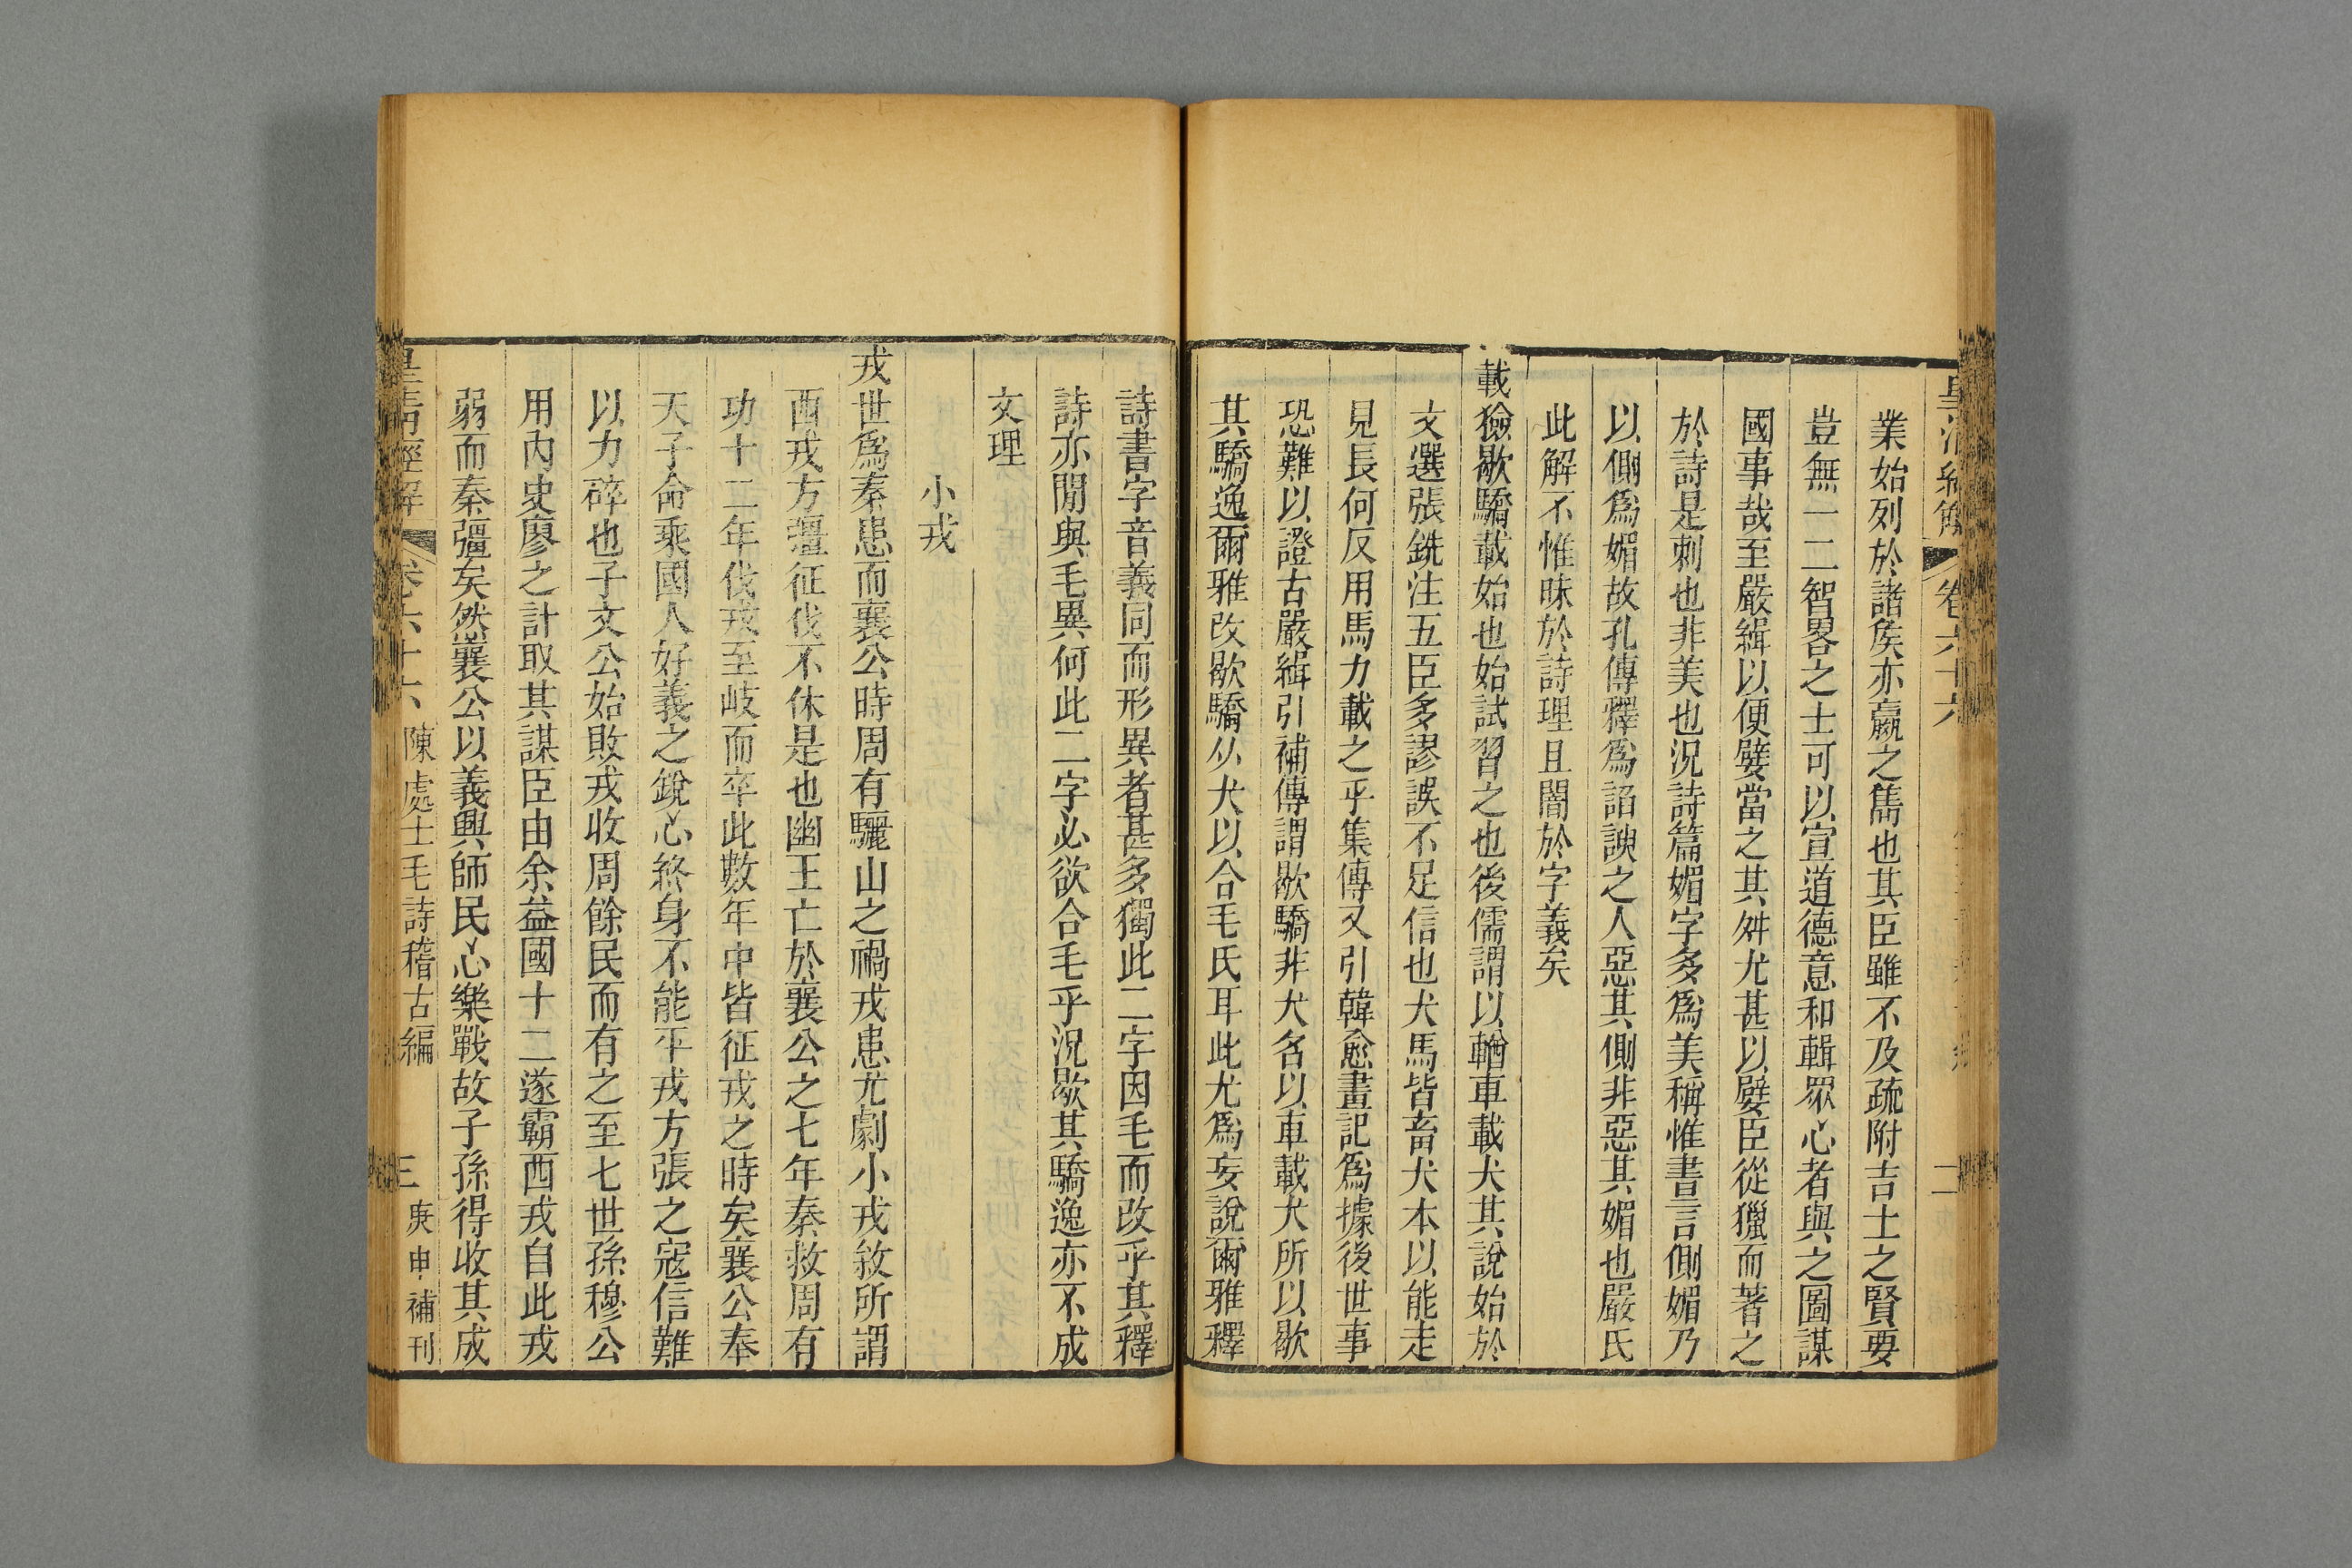 皇清經解 卷六十六 二
業始列於諸矦亦嬴之雋也其臣雖不及疏附吉士之賢要
豈無一二智畧之士可以宣道德意和輯眾心者與之圖謀
國事哉至嚴緝以便嬖當之其舛尤甚以嬖臣從獵而著之
於詩是刺也非美也況詩篇媚字多爲美稱惟書言側媚乃
以側爲媚故孔傳釋爲諂諛之人惡其側非惡其媚也嚴氏
此解不惟昧於詩理且闇於字義矣
載獫歇驕載始也始試習之也後儒謂以輶車載犬其說始於
文選張銑注五臣多謬誤不足信也犬馬皆畜犬本以能走
見長何反用馬力載之乎集傳又引韓愈畫記爲據後世事
恐難以證古嚴緝引補傳謂歇驕非犬名以車載犬所以歇
其驕逸爾雅改歇驕从犬以合毛氏耳此尤爲妄說爾雅釋
詩書字音義同而形異者甚多獨此二字因毛而改乎其釋
詩亦閒與毛異何此二字必欲合毛乎況歇其驕逸亦不成
文理
小戎
戎世爲秦患而襄公時周有驪山之禍戎患尤劇小戎敘所謂
西戎方彊征伐不休是也幽王亡於襄公之七年秦救周有
功十二年伐戎至岐而卒此數年中皆征戎之時矣襄公奉
天子命乘國人好義之銳心終身不能平戎方張之寇信難
以力碎也子文公始敗戎收周餘民而有之至七世孫穆公
用內史廖之計取其謀臣由余益國十二遂霸西戎自此戎
弱而秦彊矣然襄公以義興師民心樂戰故子孫得收其成
皇清經解 卷六十六 陳處士毛詩稽古編 三 庚申補刊